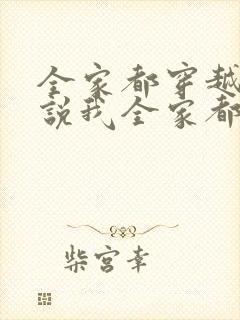 全家都穿越
說我全家都
柴宫幸